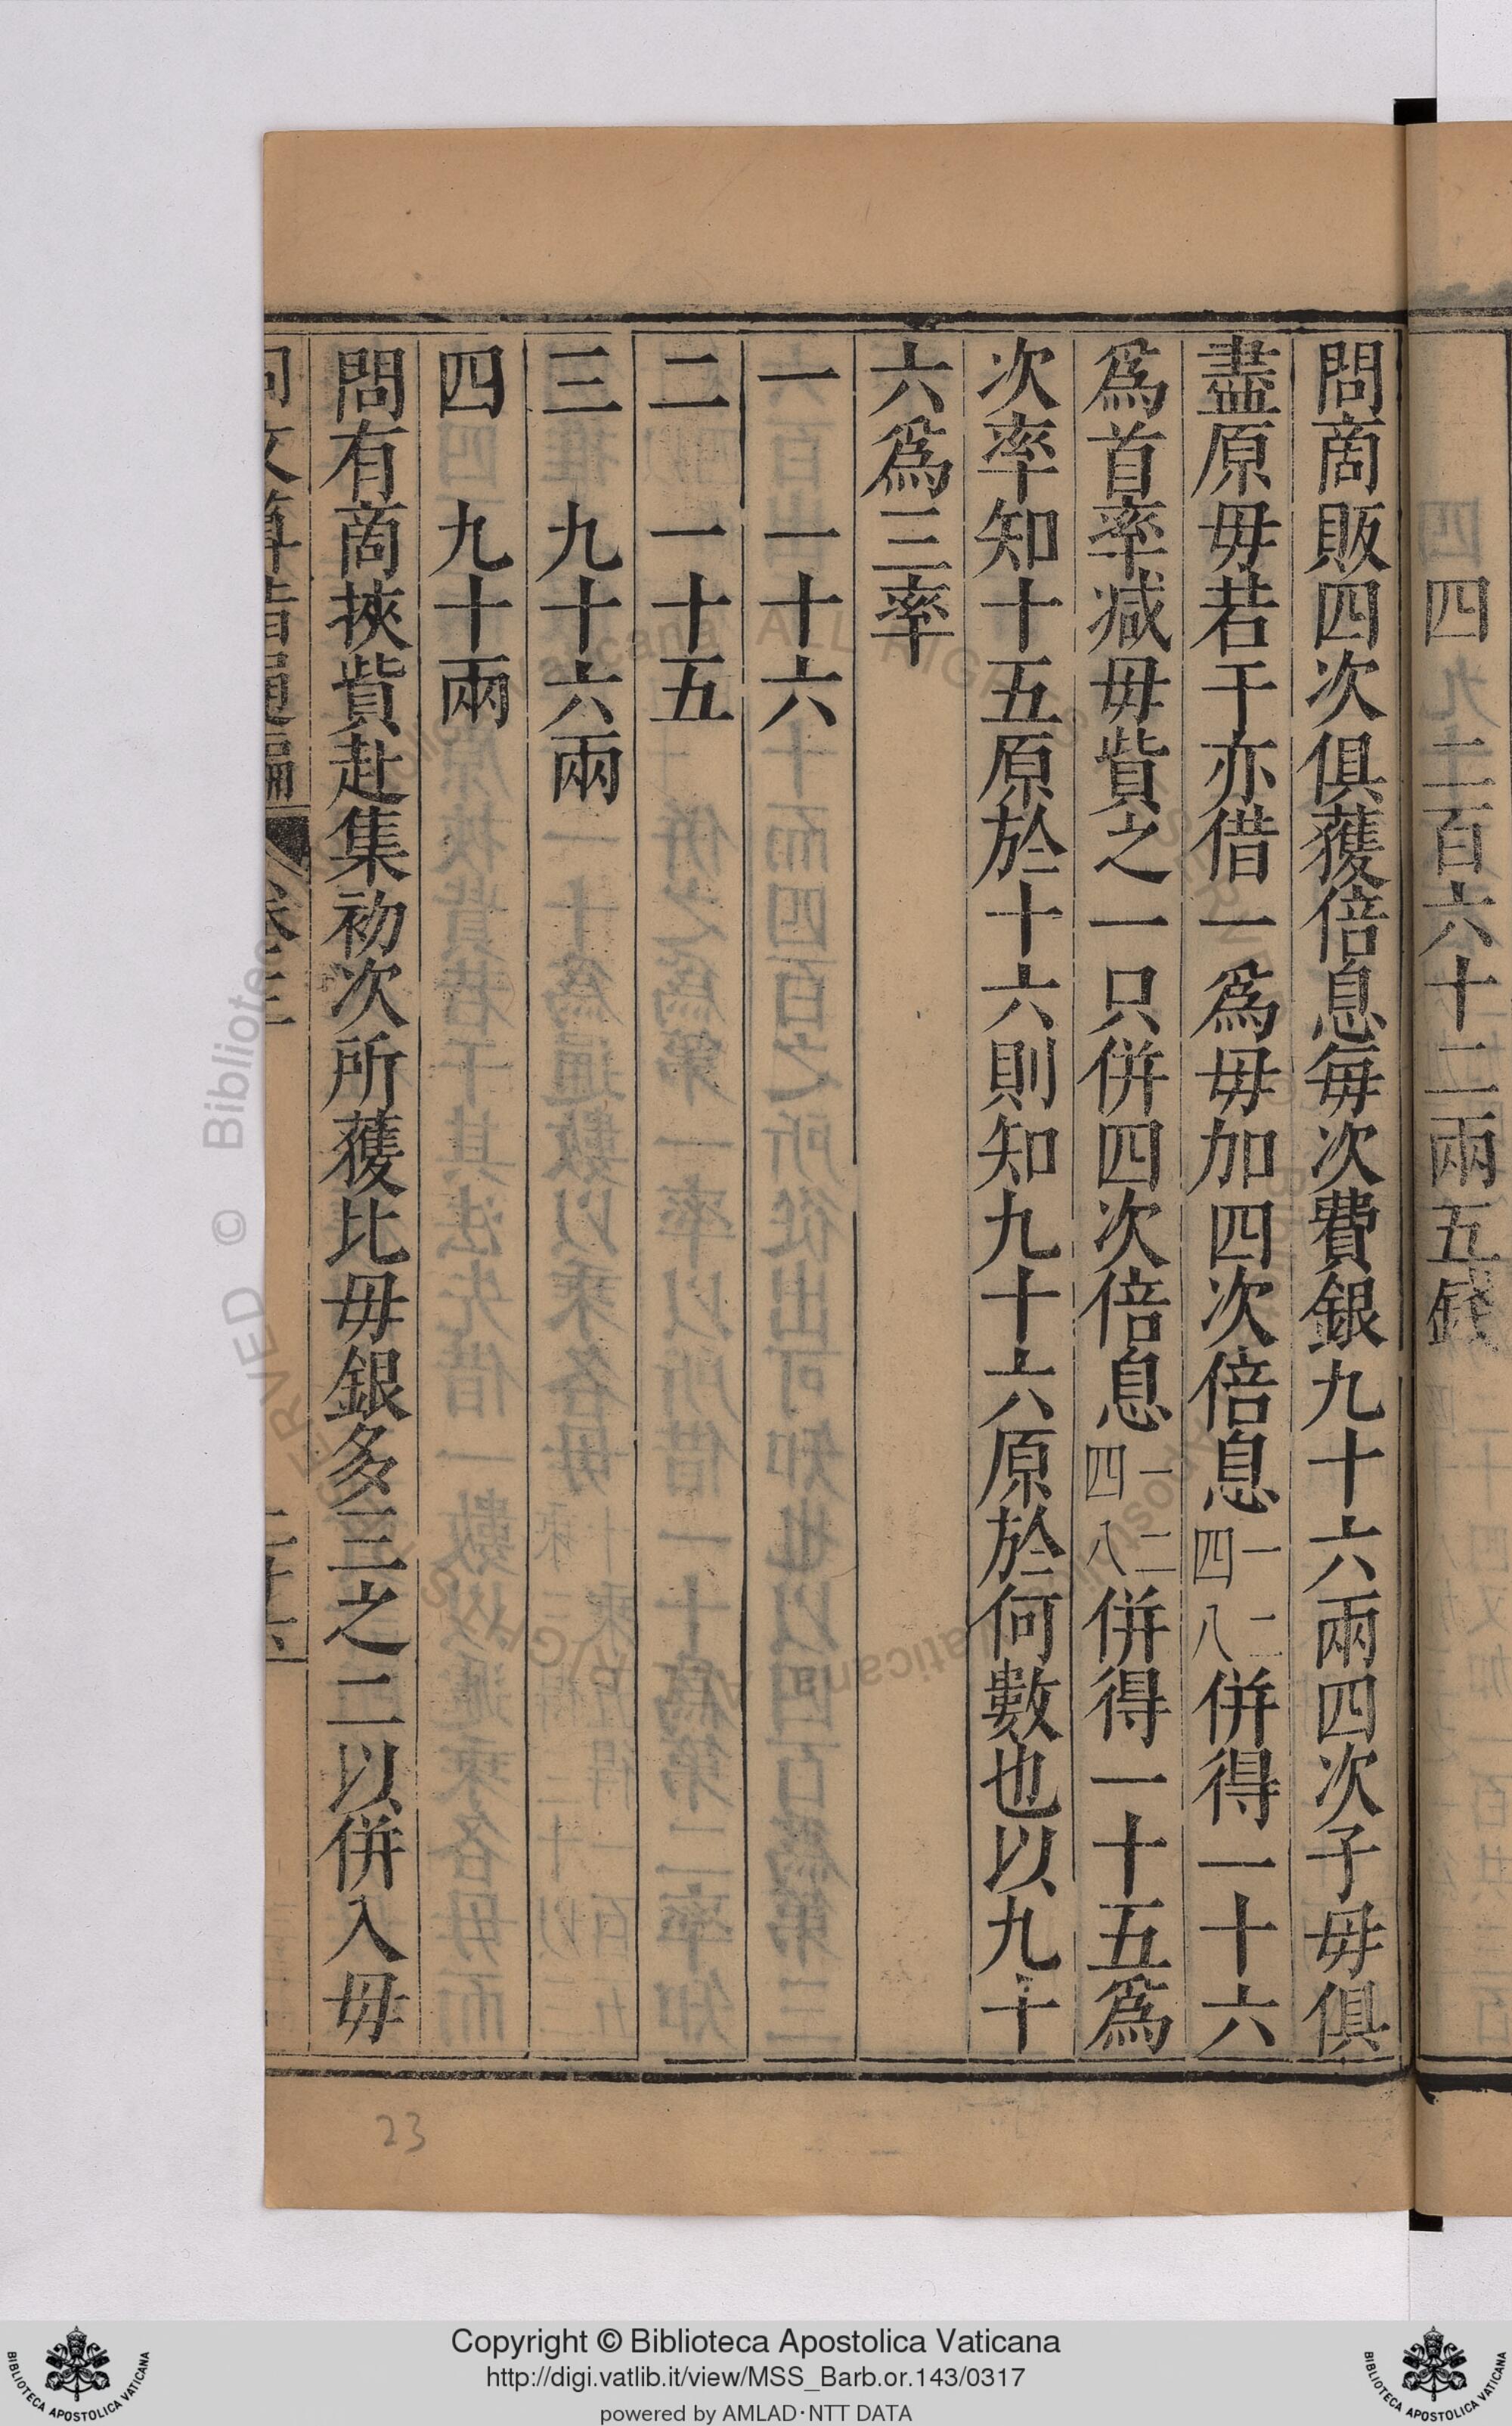 四 二百六十二兩五錢
問商販四次俱獲倍息每次費銀九十六兩四次子毋俱
盡原毋若干亦借一爲毋加四次倍息一二四八併得一十六
爲首率减毋貲之一只併四次倍息一二四八併得一十五爲
次率知十五原於十六則知九十六原於何數也以九十
六爲三率
一 一十六
二 一十五
三 九十六兩
四 九十兩
問有商挾貲赴集初次所獲比毋銀多三之二以併入毋
同文算指通編 卷三 二十六
23
Copyright © Biblioteca Apostolica Vaticana
http://digi.vatlib.it/view/MSS_Barb.or.143/0317
powered by AMLAD·NTT DATA
BIBLIOTECA APOSTOLICA VATICANA
BIBLIOTECA APOSTOLICA VATICANA